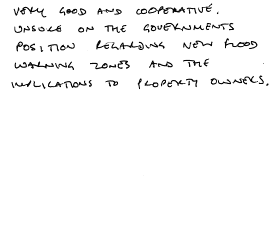 VERY GOOD AND COOPERATIVE.
UNSURE ON THE GOVERNMENTS
POSITION REGARDING NEW FLOOD
WARNING ZONES AND THE
IMPLICATIONS TO PROPERTY OWNERS.